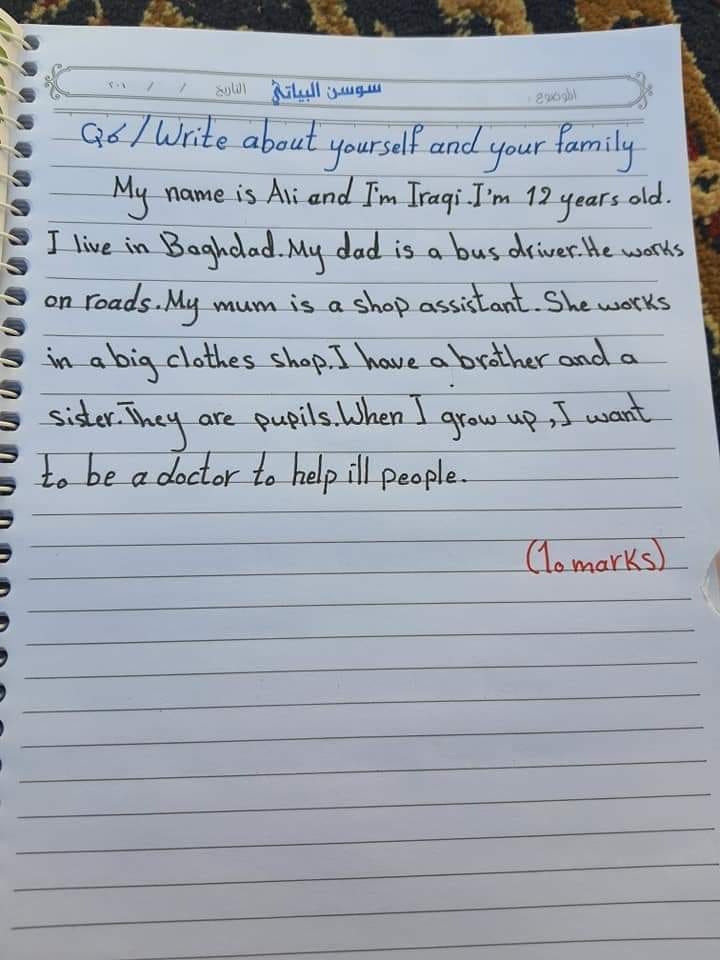 الموضوع: سوسن البياتي التاريخ / / ٢٠١
Q6/ Write about yourself and your family
My name is Ali and I'm Iraqi. I'm 12 years old.
I live in Baghdad. My dad is a bus driver. He works
on roads. My mum is a shop assistant. She works
in a big clothes shop. I have a brother and a
sister. They are pupils. When I grow up, I want
to be a doctor to help ill people.
(10 marks)